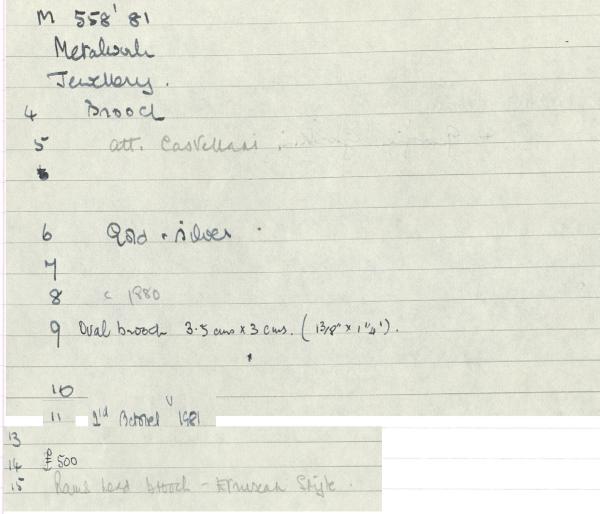 M 558' 81
Metalwork
Jewellery.
4 Brooch
5 att. Castellani
6 Gold + silver.
7
8 c 1880
9 Oval brooch 3.5 cms x 3 cms. (1 3/8" x 1 1/4").
10
11 1981
13
14 £500
15 Rams head brooch - Etruscan Style.